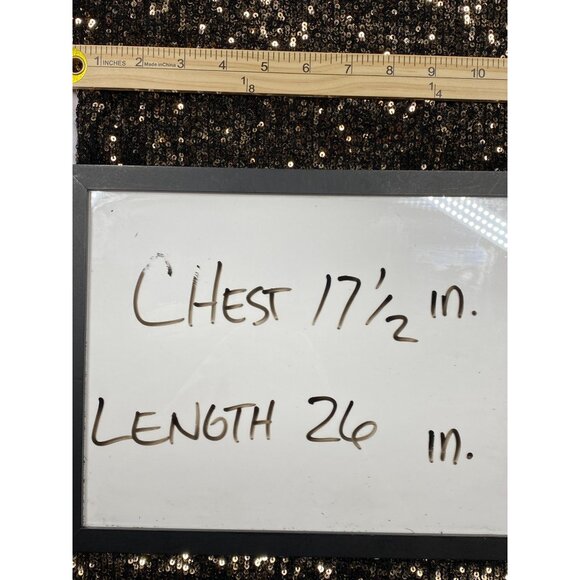 1 INCHES 2 Made in China 3 4 5 6 7 8 9 10
1/8 1/4
CHEST 17 1/2 in.
LENGTH 26 in.